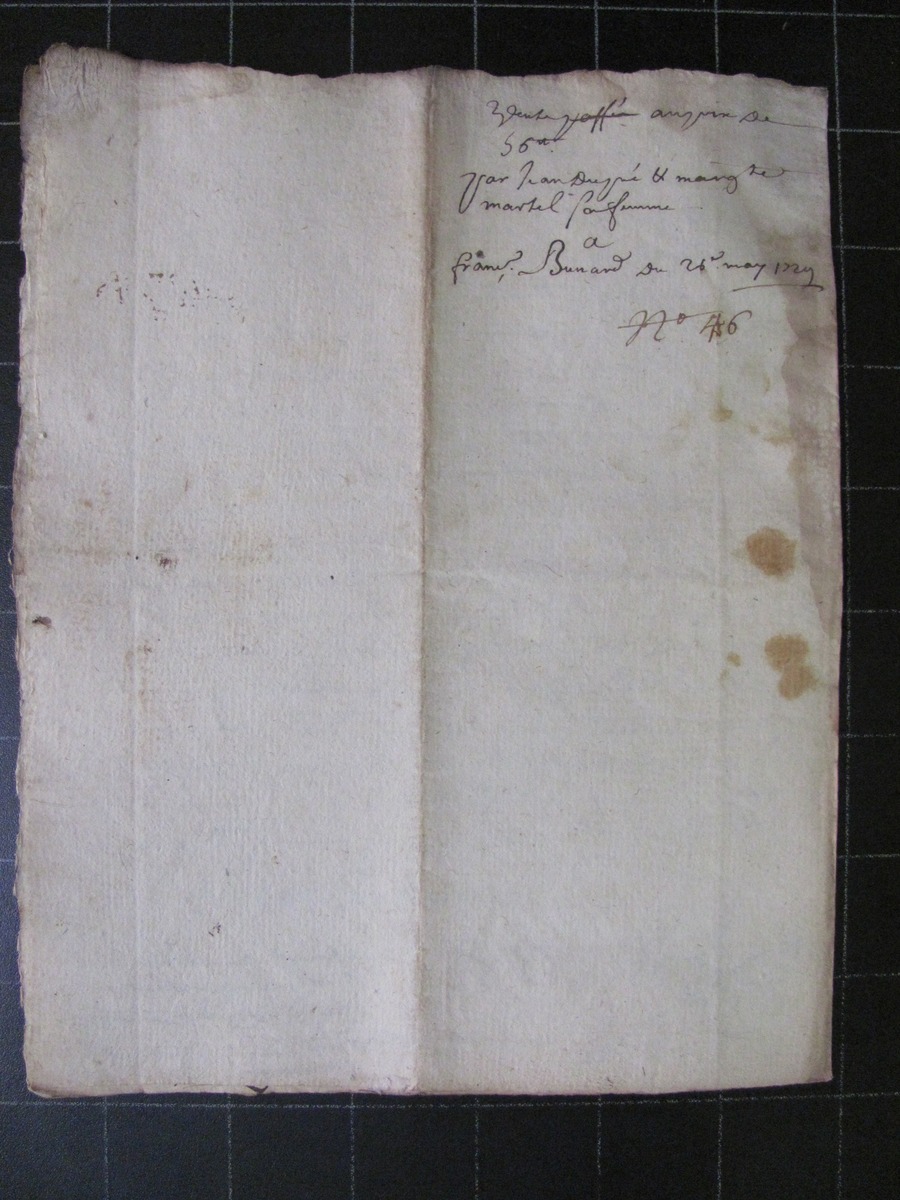 Vente passée au prix de
56 tt
par Jean Dupié & marg.te
martel sa femme
a
franc.s Bunard du 28e may 1729
No 46